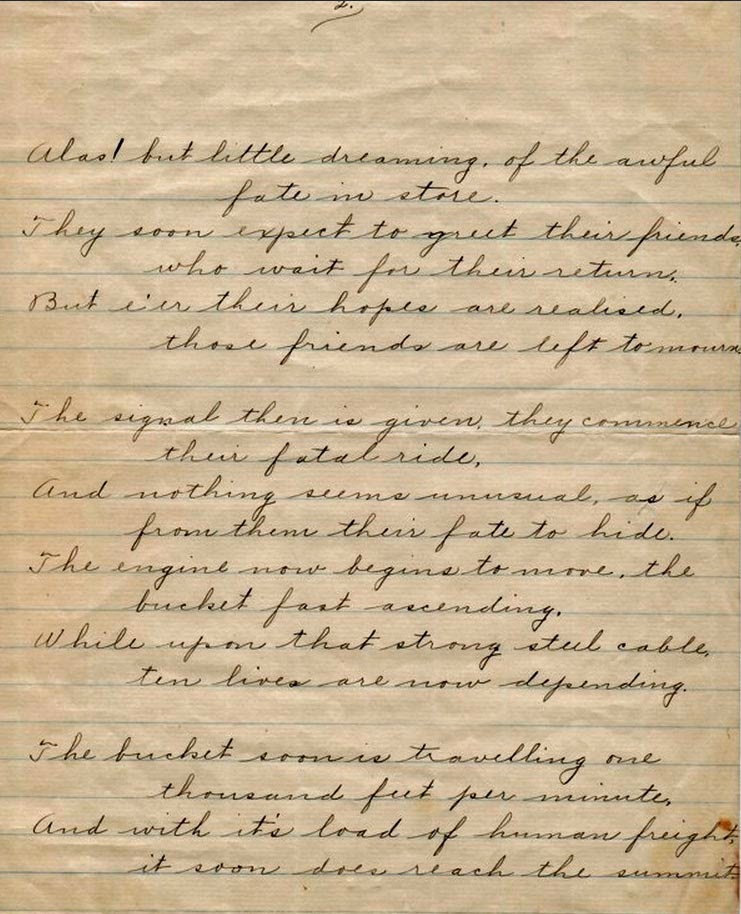 2.
Alas! but little dreaming, of the awful
fate in store.
They soon expect to greet their friends,
who wait for their return,
But e'er their hopes are realised,
those friends are left to mourn
The signal then is given, they commence
their fatal ride,
And nothing seems unusual, as if
from them their fate to hide.
The engine now begins to move, the
bucket fast ascending,
While upon that strong steel cable,
ten lives are now depending.
The bucket soon is travelling one
thousand feet per minute,
And with it's load of human freight,
it soon does reach the summit.